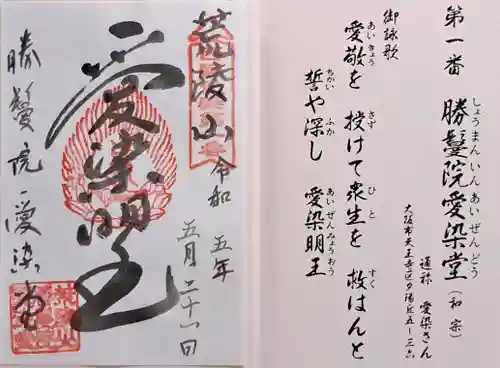 第一番 勝鬘院愛染堂(和宗)
しょうまんいんあいぜんどう
通称 愛染さん
大阪市天王寺区夕陽丘五ー三六
御詠歌
愛敬を 授けて衆生を 救はんと
あいきょう さず ひと すく
誓や深し 愛染明王
ちかい ふか あいぜんみょうおう
荒陵山
令和五年
五月二十八日
愛染明王
勝鬘院 愛染堂